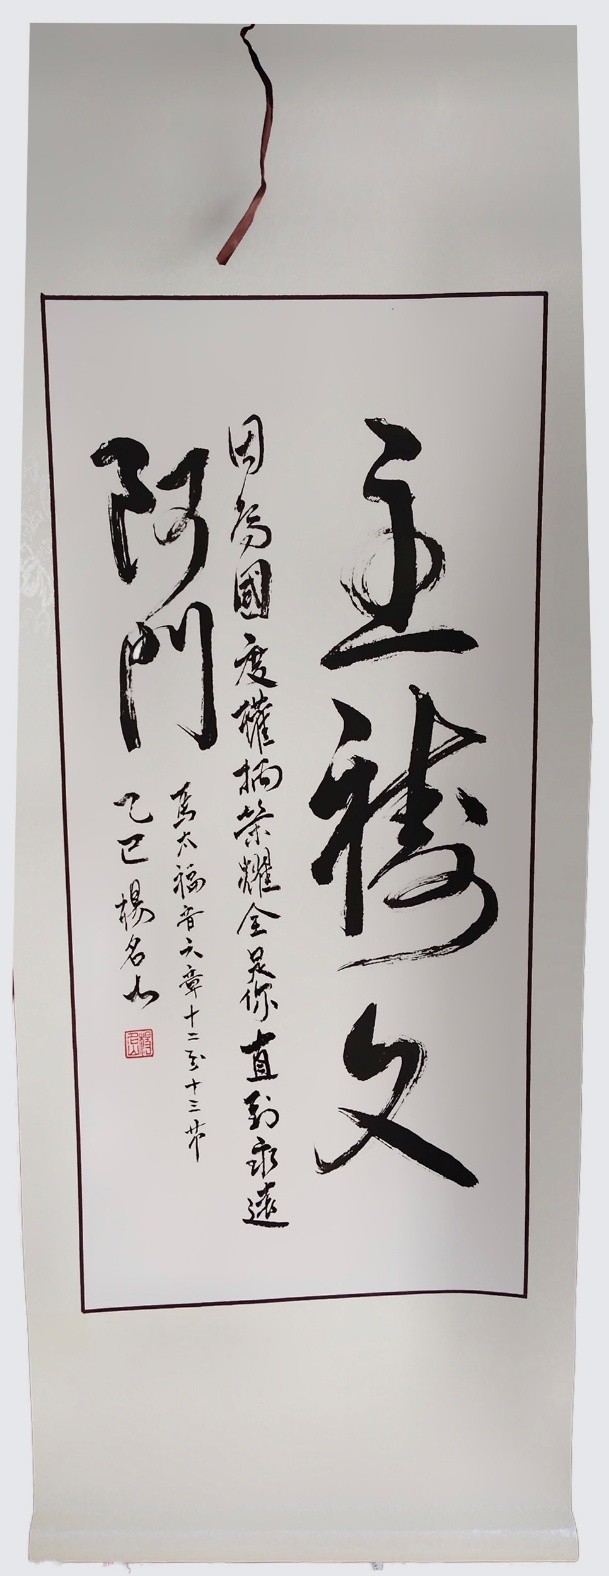 主禱文
因為國度權柄榮耀全是你直到永遠
阿門
馬太福音六章十二至十三節
乙巳 楊名山